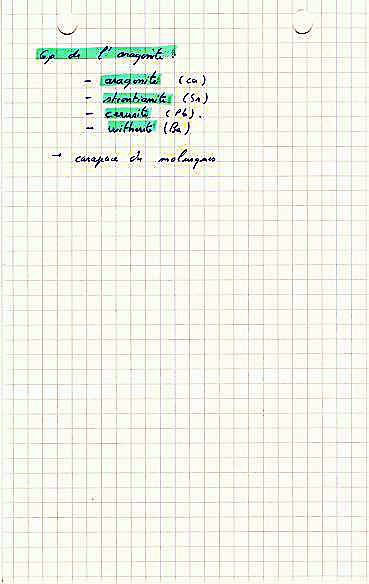 Gp de l'aragonite :
- aragonite (Ca)
- strontianite (Sr)
- cerusite (Pb).
- witherite (Ba)
→ carapace de molusques